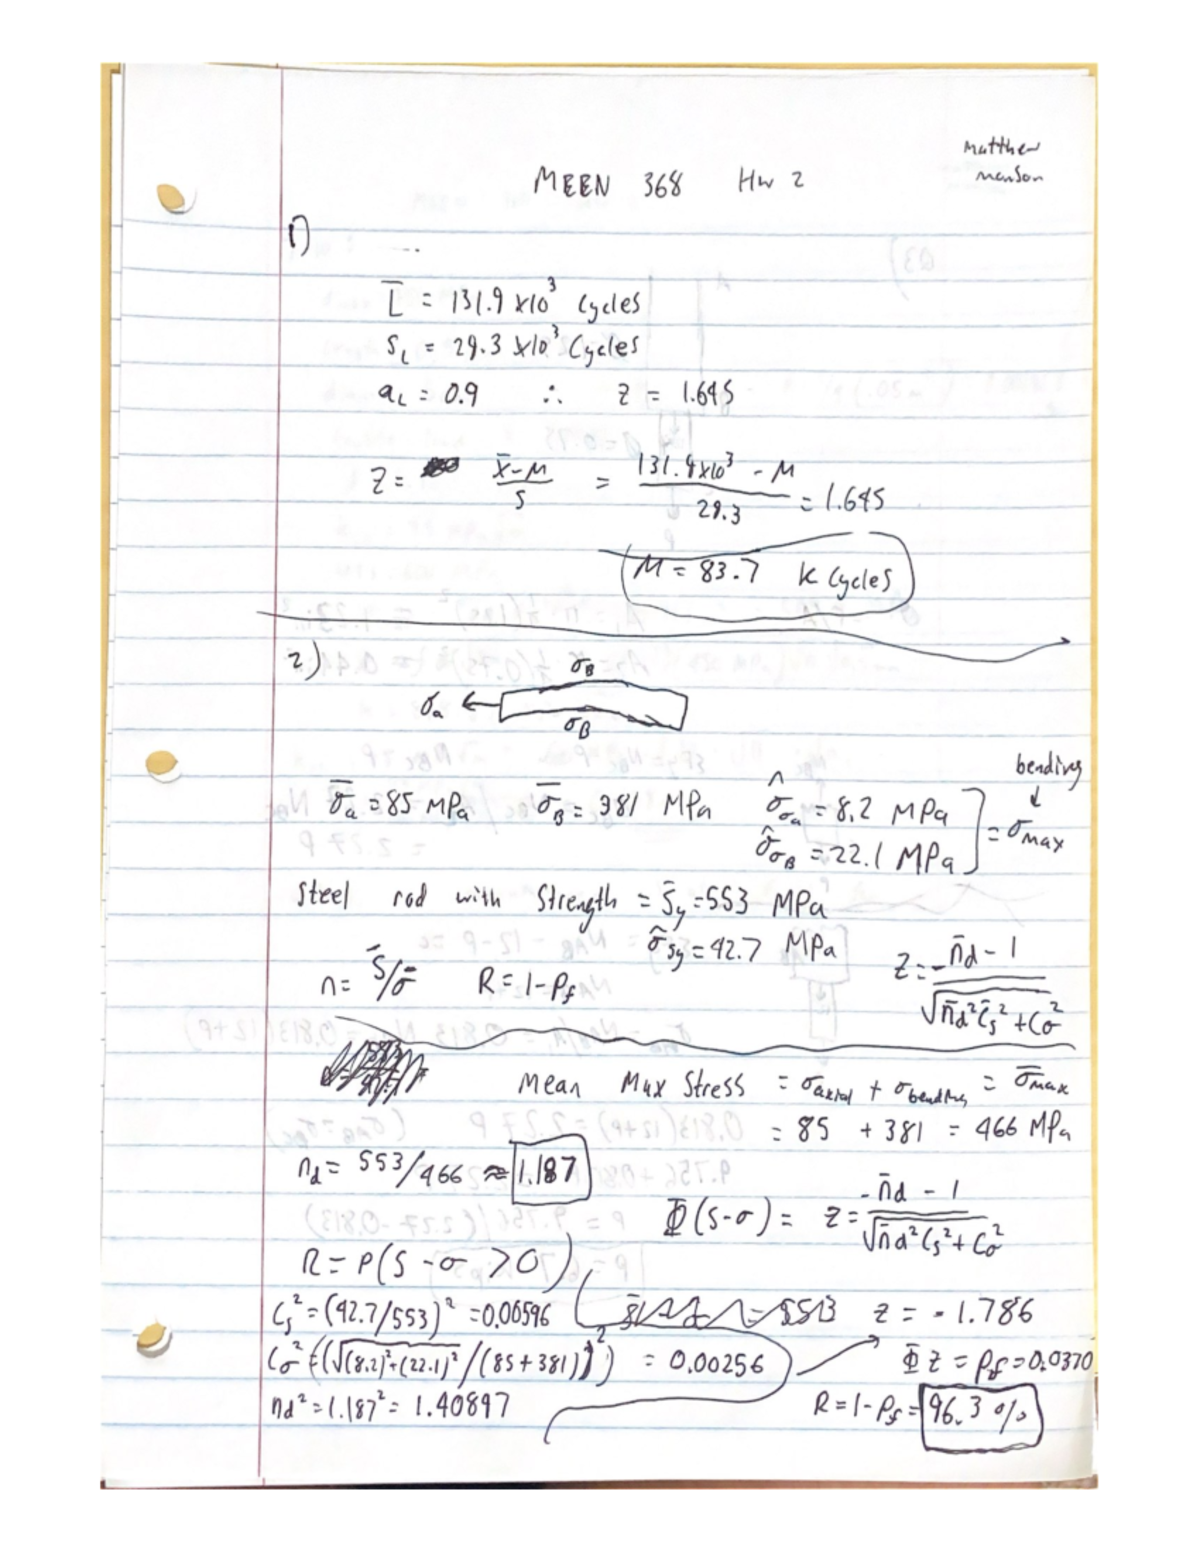 Matthew
Manson
MEEN 368 Hw 2
1) ...
L̅ = 131.9 x10³ Cycles
S_L = 29.3 x10³ Cycles
a_L = 0.9 ∴ z = 1.645
Z = (x̅-M)/S = (131.9x10³ - M)/29.3 = 1.645
M = 83.7 k Cycles
2)
σ_B
σ_a ←
σ_B
bending
↓
σ̅_a = 85 MPa σ̅_B = 381 MPa σ̂_σa = 8.2 MPa
σ̂_σB = 22.1 MPa ] = σ_max
Steel rod with Strength = S̅_y = 553 MPa
σ̂_Sy = 42.7 MPa
n = S̅/σ̅ R = 1-P_f Z = -(n̅d - 1)/√(n̅d²C̅s² + Cσ²)
Mean Max Stress = σ_axial + σ_bending = σ̅_max
= 85 + 381 = 466 MPa
n_d = 553/466 ≈ 1.187
Φ(S-σ) = z = (-n̅d - 1)/√(n̅d²Cs² + Cσ²)
R = P(S - σ > 0)
Cs² = (42.7/553)² = 0.00596 z = -1.786
Cσ² = ((√(8.2)²+(22.1)² /(85+381))²) = 0.00256 Φ z = P_f = 0.0370
nd² = 1.187² = 1.40897 R = 1-P_f = 96.3 %